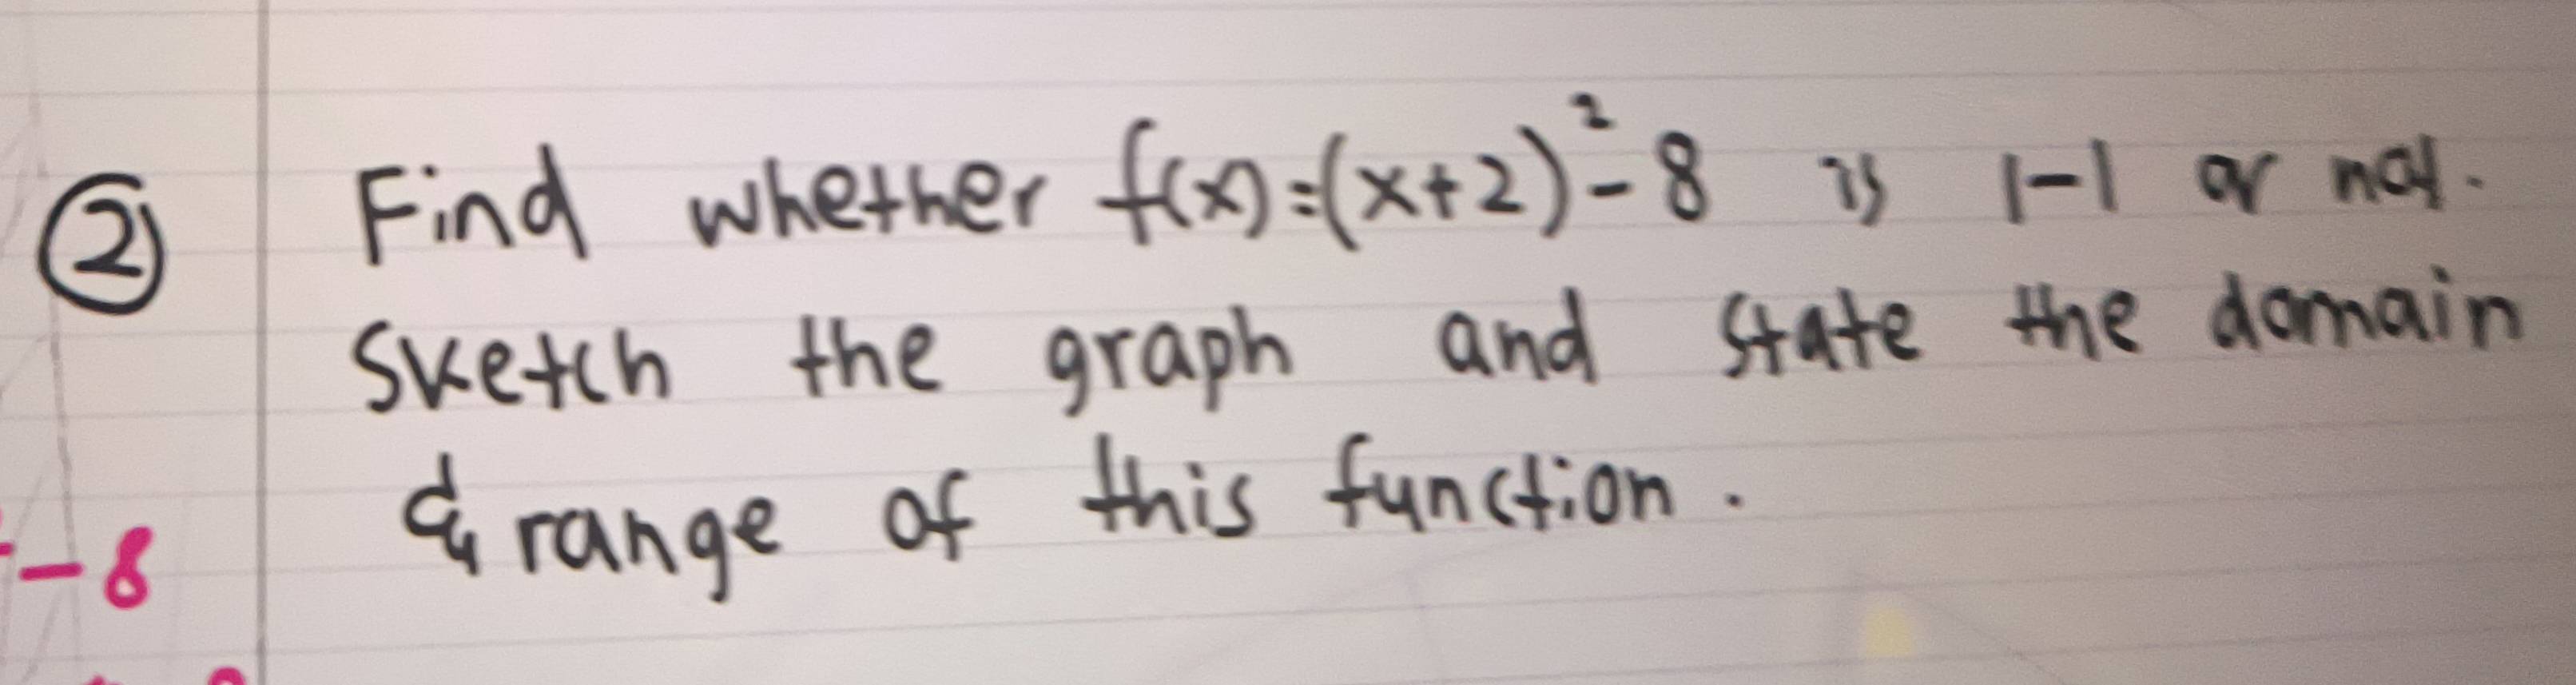 ② Find whether f(x)=(x+2)²-8 is 1-1 or not.
Sketch the graph and state the domain
& range of this function.
-8